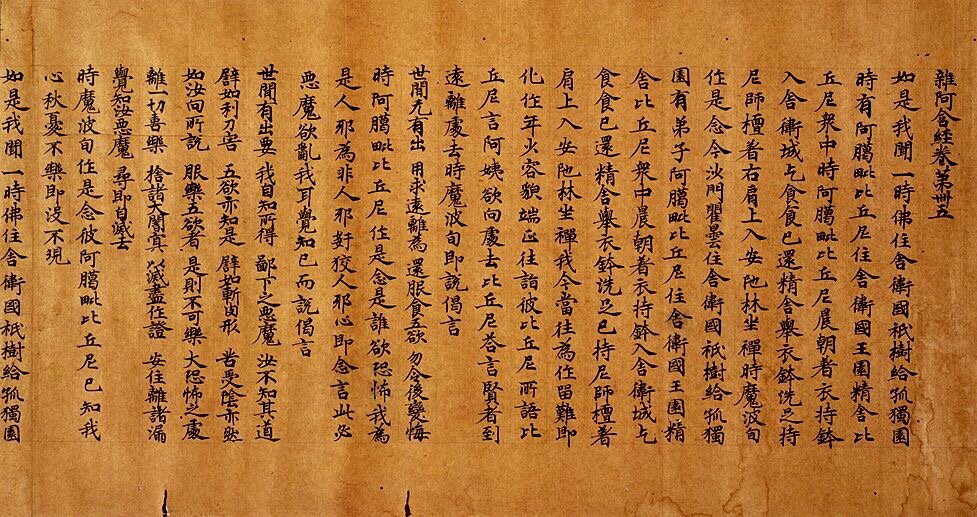 雜阿含經卷第卌五
如是我聞一時佛住舍衛國祇樹給孤獨園
時有阿臈毗比丘尼住舍衛國王園精舍比
丘尼衆中時阿臈毗比丘尼晨朝着衣持鉢
入舍衛城乞食食已還精舍舉衣鉢洗足持
尼師檀着右肩上入安陁林坐禪時魔波旬
作是念今沙門瞿曇住舍衛國祇樹給孤獨
園有弟子阿臈毗比丘尼住舍衛國王園精
舍比丘尼衆中晨朝着衣持鉢入舍衛城乞
食食已還精舍舉衣鉢洗足已持尼師檀着
肩上入安陁林坐禪我今當往為作留難即
化作年少容貌端正往詣彼比丘尼所語比
丘尼言阿姨欲向處去比丘尼荅言賢者到
遠離處去時魔波旬即說偈言
世間无有出 用求遠離為 還服食五欲 勿令後變悔
時阿臈毗比丘尼作是念是誰欲恐怖我為
是人耶為非人耶姧狡人耶心即念言此必
惡魔欲亂我耳覺知已而說偈言
世間有出要 我自知所得 鄙下之惡魔 汝不知其道
譬如利刀害 五欲亦如是 譬如斬肉形 苦受陰亦然
如汝向所說 服樂五欲者 是則不可樂 大恐怖之處
離一切喜樂 捨諸大闇冥 以滅盡作證 安住離諸漏
覺知汝惡魔 尋即自滅去
時魔波旬作是念彼阿臈毗比丘尼已知我
心秋憂不樂即没不現
如是我聞一時佛住舍衛國祇樹給孤獨園